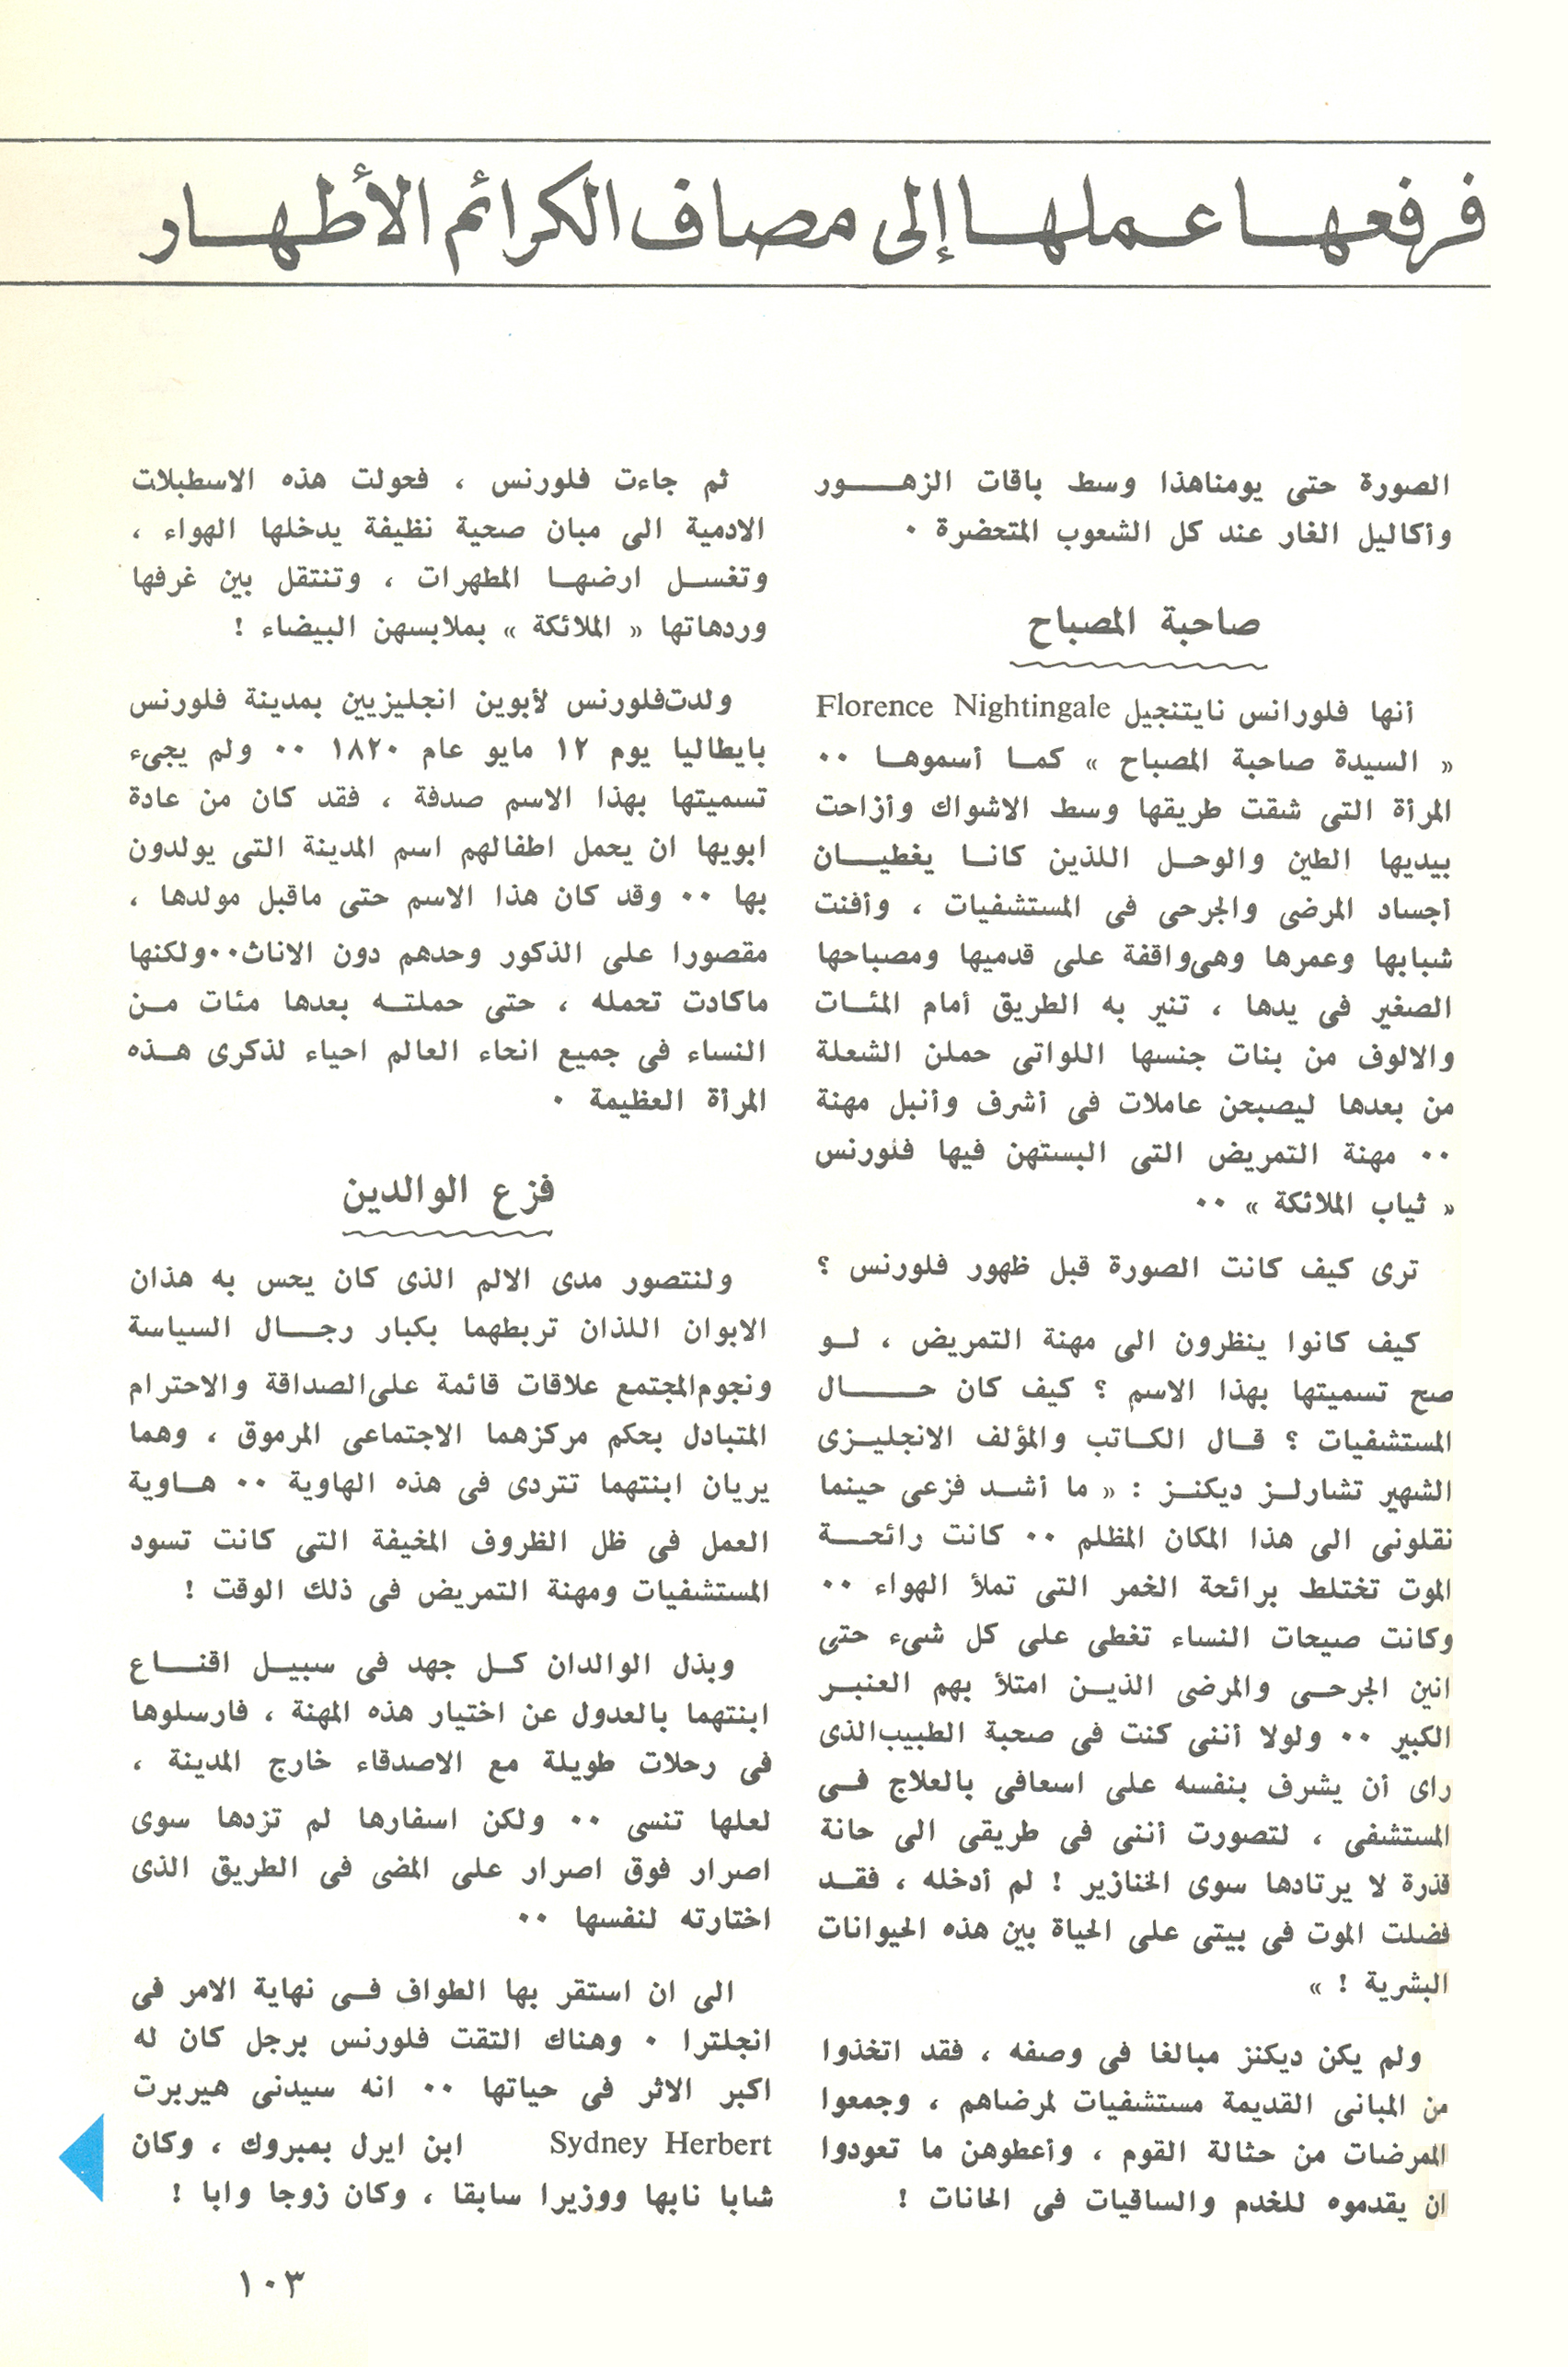 فرفعها عملها إلى مصاف الكرائم الأطهار
الصورة حتى يومناهذا وسط باقات الزهور
وأكاليل الغار عند كل الشعوب المتحضرة ٠
صاحبة المصباح
أنها فلورانس نايتنجيل Florence Nightingale
« السيدة صاحبة المصباح » كما أسموها ٠٠
المرأة التى شقت طريقها وسط الاشواك وأزاحت
بيديها الطين والوحل اللذين كانا يغطيان
أجساد المرضى والجرحى فى المستشفيات ، وأفنت
شبابها وعمرها وهى واقفة على قدميها ومصباحها
الصغير فى يدها ، تنير به الطريق أمام المئات
والالوف من بنات جنسها اللواتى حملن الشعلة
من بعدها ليصبحن عاملات فى أشرف وأنبل مهنة
٠٠ مهنة التمريض التى البستهن فيها فلورنس
« ثياب الملائكة » ٠٠
ترى كيف كانت الصورة قبل ظهور فلورنس ؟
كيف كانوا ينظرون الى مهنة التمريض ، لو
صح تسميتها بهذا الاسم ؟ كيف كان حال
المستشفيات ؟ قال الكاتب والمؤلف الانجليزى
الشهير تشارلز ديكنز : « ما أشد فزعى حينما
نقلونى الى هذا المكان المظلم ٠٠ كانت رائحة
الموت تختلط برائحة الخمر التى تملأ الهواء ٠٠
وكانت صيحات النساء تغطى على كل شىء حتى
انين الجرحى والمرضى الذين امتلأ بهم العنبر
الكبير ٠٠ ولولا أننى كنت فى صحبة الطبيب الذى
راى أن يشرف بنفسه على اسعافى بالعلاج فى
المستشفى ، لتصورت أننى فى طريقى الى حانة
قذرة لا يرتادها سوى الخنازير ! لم أدخله ، فقد
فضلت الموت فى بيتى على الحياة بين هذه الحيوانات
البشرية ! »
ولم يكن ديكنز مبالغا فى وصفه ، فقد اتخذوا
من المبانى القديمة مستشفيات لمرضاهم ، وجمعوا
الممرضات من حثالة القوم ، وأعطوهن ما تعودوا
ان يقدموه للخدم والساقيات فى الحانات !
ثم جاءت فلورنس ، فحولت هذه الاسطبلات
الادمية الى مبان صحية نظيفة يدخلها الهواء ،
وتغسل ارضها المطهرات ، وتنتقل بين غرفها
وردهاتها « الملائكة » بملابسهن البيضاء !
ولدت فلورنس لأبوين انجليزيين بمدينة فلورنس
بايطاليا يوم ١٢ مايو عام ١٨٢٠ ٠٠ ولم يجىء
تسميتها بهذا الاسم صدفة ، فقد كان من عادة
ابويها ان يحمل اطفالهم اسم المدينة التى يولدون
بها ٠٠ وقد كان هذا الاسم حتى ماقبل مولدها ،
مقصورا على الذكور وحدهم دون الاناث٠٠ولكنها
ماكادت تحمله ، حتى حملته بعدها مئات من
النساء فى جميع انحاء العالم احياء لذكرى هذه
المرأة العظيمة ٠
فزع الوالدين
ولنتصور مدى الالم الذى كان يحس به هذان
الابوان اللذان تربطهما بكبار رجال السياسة
ونجوم المجتمع علاقات قائمة على الصداقة والاحترام
المتبادل بحكم مركزهما الاجتماعى المرموق ، وهما
يريان ابنتهما تتردى فى هذه الهاوية ٠٠ هاوية
العمل فى ظل الظروف المخيفة التى كانت تسود
المستشفيات ومهنة التمريض فى ذلك الوقت !
وبذل الوالدان كل جهد فى سبيل اقناع
ابنتهما بالعدول عن اختيار هذه المهنة ، فارسلوها
فى رحلات طويلة مع الاصدقاء خارج المدينة ،
لعلها تنسى ٠٠ ولكن اسفارها لم تزدها سوى
اصرار فوق اصرار على المضى فى الطريق الذى
اختارته لنفسها ٠٠
الى ان استقر بها الطواف فى نهاية الامر فى
انجلترا ٠ وهناك التقت فلورنس برجل كان له
اكبر الاثر فى حياتها ٠٠ انه سيدنى هيربرت
Sydney Herbert ابن ايرل بمبروك ، وكان
شابا نابها ووزيرا سابقا ، وكان زوجا وابا !
١٠٣